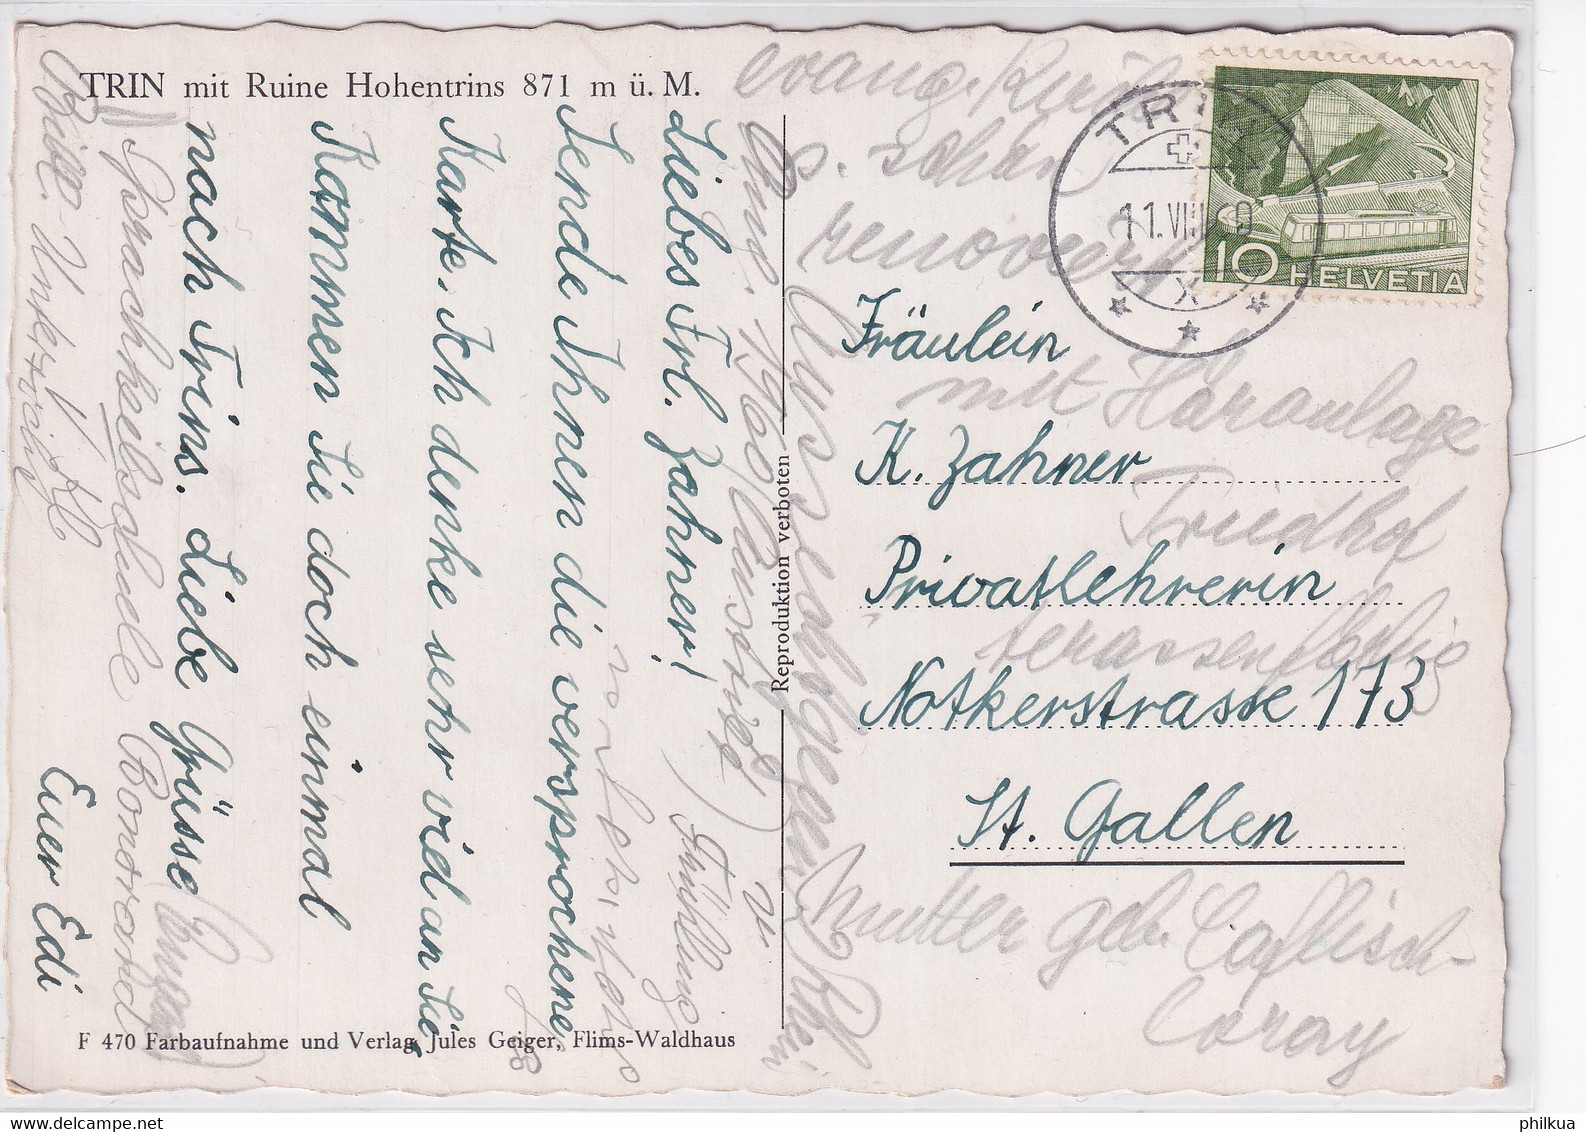 TRIN mit Ruine Hohentrins 871 m ü. M.
Liebes Frl. Zahner!
Sende Ihnen die versprochene
Karte. Ich denke sehr viel an Sie.
Kommen Sie doch einmal
nach Trins. Liebe Grüsse
Euer Edi
F 470 Farbaufnahme und Verlag Jules Geiger, Flims-Waldhaus
Reproduktion verboten
TRIN
11.VIII
10 HELVETIA
Fräulein
K. Zahner
Privatlehrerin
Notkerstrasse 173
St. Gallen
evang.
s. schön
renoviert
mit Höranlage
Friedhof
Mutter geb. Caflisch-
Coray
Sprachheilschule
Unterricht
1960
Frühling
philkua